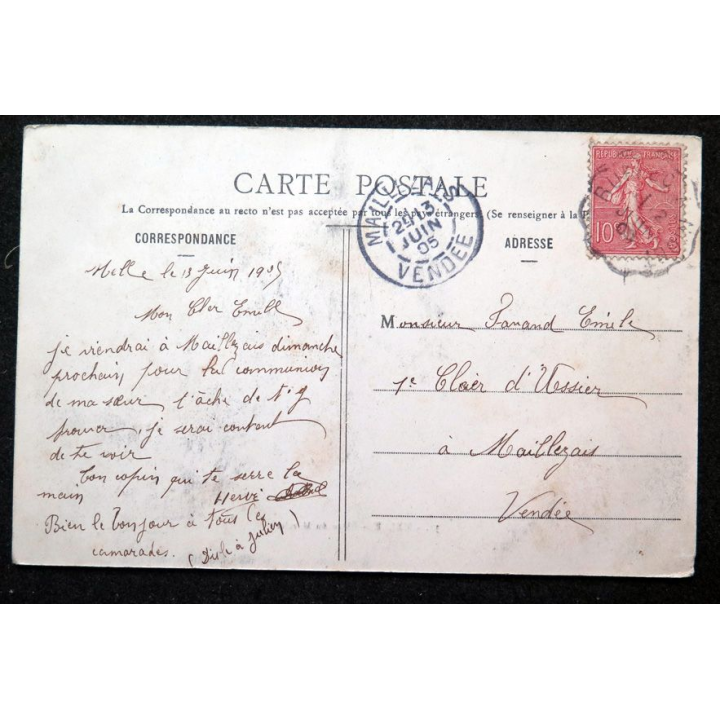 CARTE POSTALE
La Correspondance au recto n'est pas acceptée par tous les pays étrangers. (Se renseigner à la
CORRESPONDANCE
ADRESSE
MAILLEZAIS
13
JUIN
05
VENDÉE
RÉPUBLIQUE FRANÇAISE
10
Melle le 13 Juin 1905
Mon Cher Emile
je viendrai à Maillezais dimanche
prochain, pour la communion
de ma sœur, tâche de t'y
trouver, je serai content
de te voir
Ton copin qui te serre la
main Hervé
Bien le bonjour à tous les
camarades.
(Dis le à Julien)
Monsieur Favand Emile
1e Clerc d'Huissier
à Maillezais
Vendée